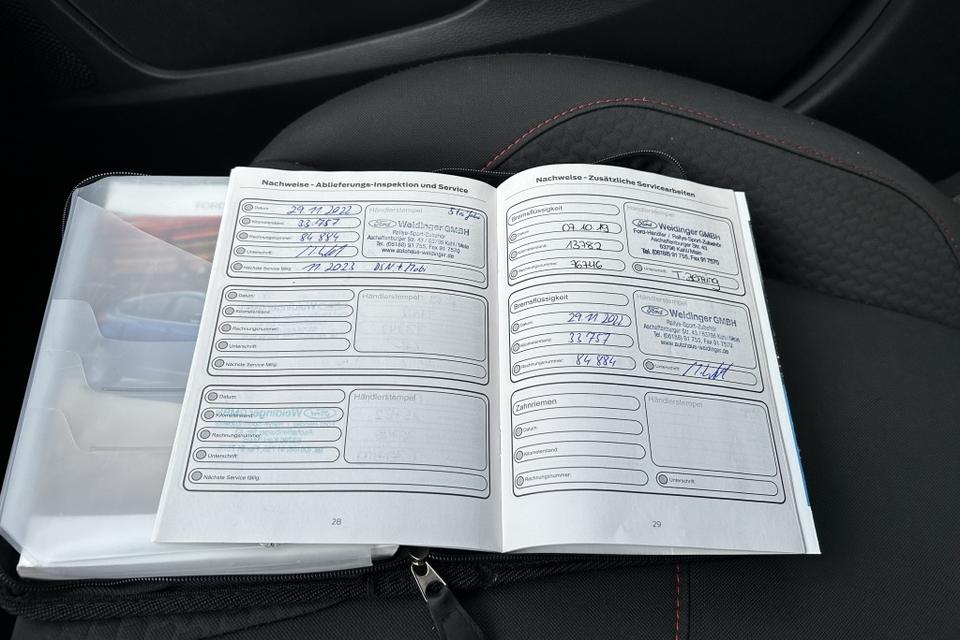 Nachweise - Ablieferungs-Inspektion und Service
Datum: 29.11.2022
Kilometerstand: 33.757
Rechnungsnummer: 84 884
Unterschrift:
Nächste Service fällig: 11.2023
Händlerstempel
Ford Weidinger GMBH
Rallye-Sport-Zubehör
Aschaffenburger Str. 43 / 63796 Kahl/Main
Tel. (06188) 91 755, Fax 91 7570
www.autohaus-weidinger.de
Datum:
Kilometerstand:
Rechnungsnummer:
Unterschrift:
Nächste Service fällig:
Händlerstempel
Datum:
Kilometerstand:
Rechnungsnummer:
Unterschrift:
Nächste Service fällig:
Händlerstempel
28
Nachweise - Zusätzliche Servicearbeiten
Bremsflüssigkeit
Datum: 07.10.19
Kilometerstand: 13782
Rechnungsnummer: 76746
Händlerstempel
Ford Weidinger GMBH
Ford-Händler / Rallye-Sport-Zubehör
Aschaffenburger Str. 43
63796 Kahl/Main
Tel. (06188) 91 755, Fax 91 7570
Unterschrift:
Bremsflüssigkeit
Datum: 29.11.2022
Kilometerstand: 33.757
Rechnungsnummer: 84 884
Händlerstempel
Ford Weidinger GMBH
Rallye-Sport-Zubehör
Aschaffenburger Str. 43 / 63796 Kahl/Main
Tel. (06188) 91 755, Fax 91 7570
www.autohaus-weidinger.de
Unterschrift:
Zahnriemen
Datum:
Kilometerstand:
Rechnungsnummer:
Händlerstempel
Unterschrift:
29